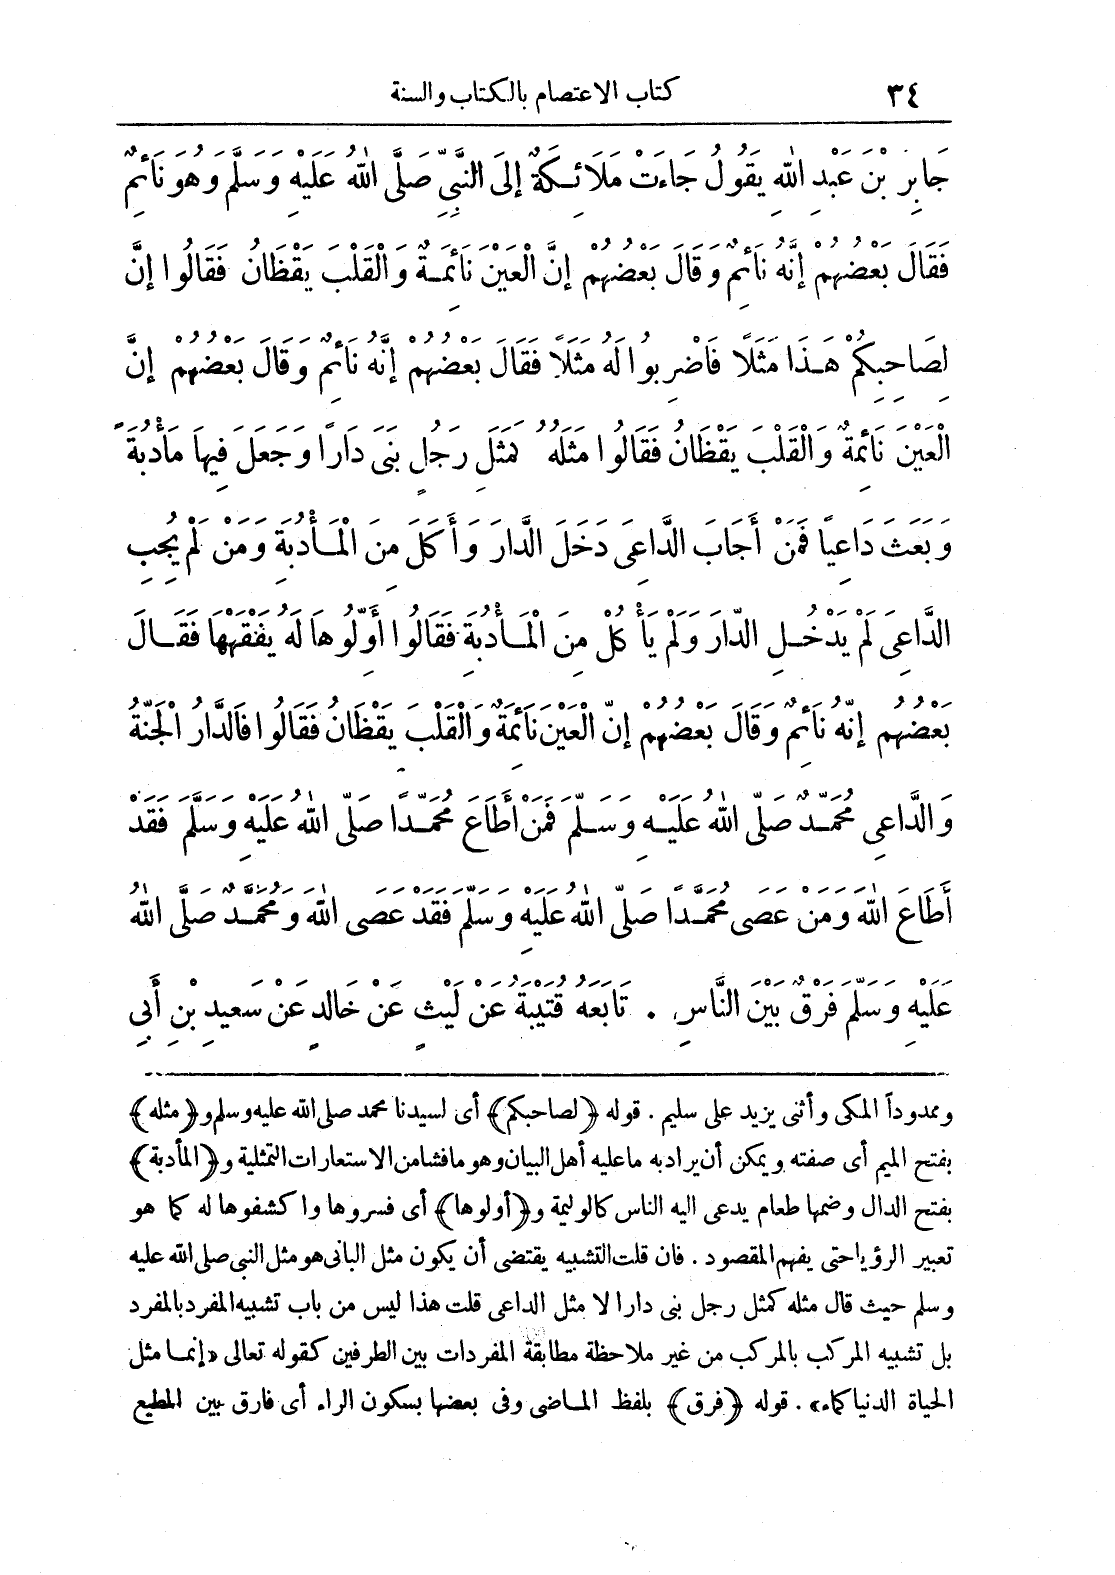 ٣٤ كتاب الاعتصام بالكتاب والسنة
جَابِرَ بْنَ عَبْدِ اللهِ يَقُولُ جَاءَتْ مَلَائِكَةٌ إِلَى النَّبِيِّ صَلَّى اللهُ عَلَيْهِ وَسَلَّمَ وَهُوَ نَائِمٌ
فَقَالَ بَعْضُهُمْ إِنَّهُ نَائِمٌ وَقَالَ بَعْضُهُمْ إِنَّ الْعَيْنَ نَائِمَةٌ وَالْقَلْبَ يَقْظَانُ فَقَالُوا إِنَّ
لِصَاحِبِكُمْ هَذَا مَثَلًا فَاضْرِبُوا لَهُ مَثَلًا فَقَالَ بَعْضُهُمْ إِنَّهُ نَائِمٌ وَقَالَ بَعْضُهُمْ إِنَّ
الْعَيْنَ نَائِمَةٌ وَالْقَلْبَ يَقْظَانُ فَقَالُوا مَثَلُهُ كَمَثَلِ رَجُلٍ بَنَى دَارًا وَجَعَلَ فِيهَا مَأْدُبَةً
وَبَعَثَ دَاعِيًا فَمَنْ أَجَابَ الدَّاعِىَ دَخَلَ الدَّارَ وَأَكَلَ مِنَ الْمَأْدُبَةِ وَمَنْ لَمْ يُجِبِ
الدَّاعِىَ لَمْ يَدْخُلِ الدَّارَ وَلَمْ يَأْكُلْ مِنَ الْمَأْدُبَةِ فَقَالُوا أَوِّلُوهَا لَهُ يَفْقَهْهَا فَقَالَ
بَعْضُهُمْ إِنَّهُ نَائِمٌ وَقَالَ بَعْضُهُمْ إِنَّ الْعَيْنَ نَائِمَةٌ وَالْقَلْبَ يَقْظَانُ فَقَالُوا فَالدَّارُ الْجَنَّةُ
وَالدَّاعِى مُحَمَّدٌ صَلَّى اللهُ عَلَيْهِ وَسَلَّمَ فَمَنْ أَطَاعَ مُحَمَّدًا صَلَّى اللهُ عَلَيْهِ وَسَلَّمَ فَقَدْ
أَطَاعَ اللهَ وَمَنْ عَصَى مُحَمَّدًا صَلَّى اللهُ عَلَيْهِ وَسَلَّمَ فَقَدْ عَصَى اللهَ وَمُحَمَّدٌ صَلَّى اللهُ
عَلَيْهِ وَسَلَّمَ فَرْقٌ بَيْنَ النَّاسِ . تَابَعَهُ قُتَيْبَةُ عَنْ لَيْثٍ عَنْ خَالِدٍ عَنْ سَعِيدِ بْنِ أَبِى
وممدوداً المكى وأثنى يزيد على سليم . قوله ﴿لصاحبكم﴾ أى لسيدنا محمد صلى الله عليه وسلم و﴿مثله﴾
بفتح الميم أى صفته ويمكن أن يراد به ما عليه أهل البيان وهو ما فشا من الاستعارات التمثلية و﴿المأدبة﴾
بفتح الدال وضمها طعام يدعى اليه الناس كالوليمة و﴿أولوها﴾ أى فسروها واكشفوها له كما هو
تعبير الرؤيا حتى يفهم المقصود . فان قلت التشبيه يقتضى أن يكون مثل البانى هو مثل النبى صلى الله عليه
وسلم حيث قال مثله كمثل رجل بنى دارا لا مثل الداعى قلت هذا ليس من باب تشبيه المفرد بالمفرد
بل تشبيه المركب بالمركب من غير ملاحظة مطابقة المفردات بين الطرفين كقوله تعالى «إنما مثل
الحياة الدنيا كماء» . قوله ﴿فرق﴾ بلفظ الماضى وفى بعضها بسكون الراء أى فارق بين المطيع